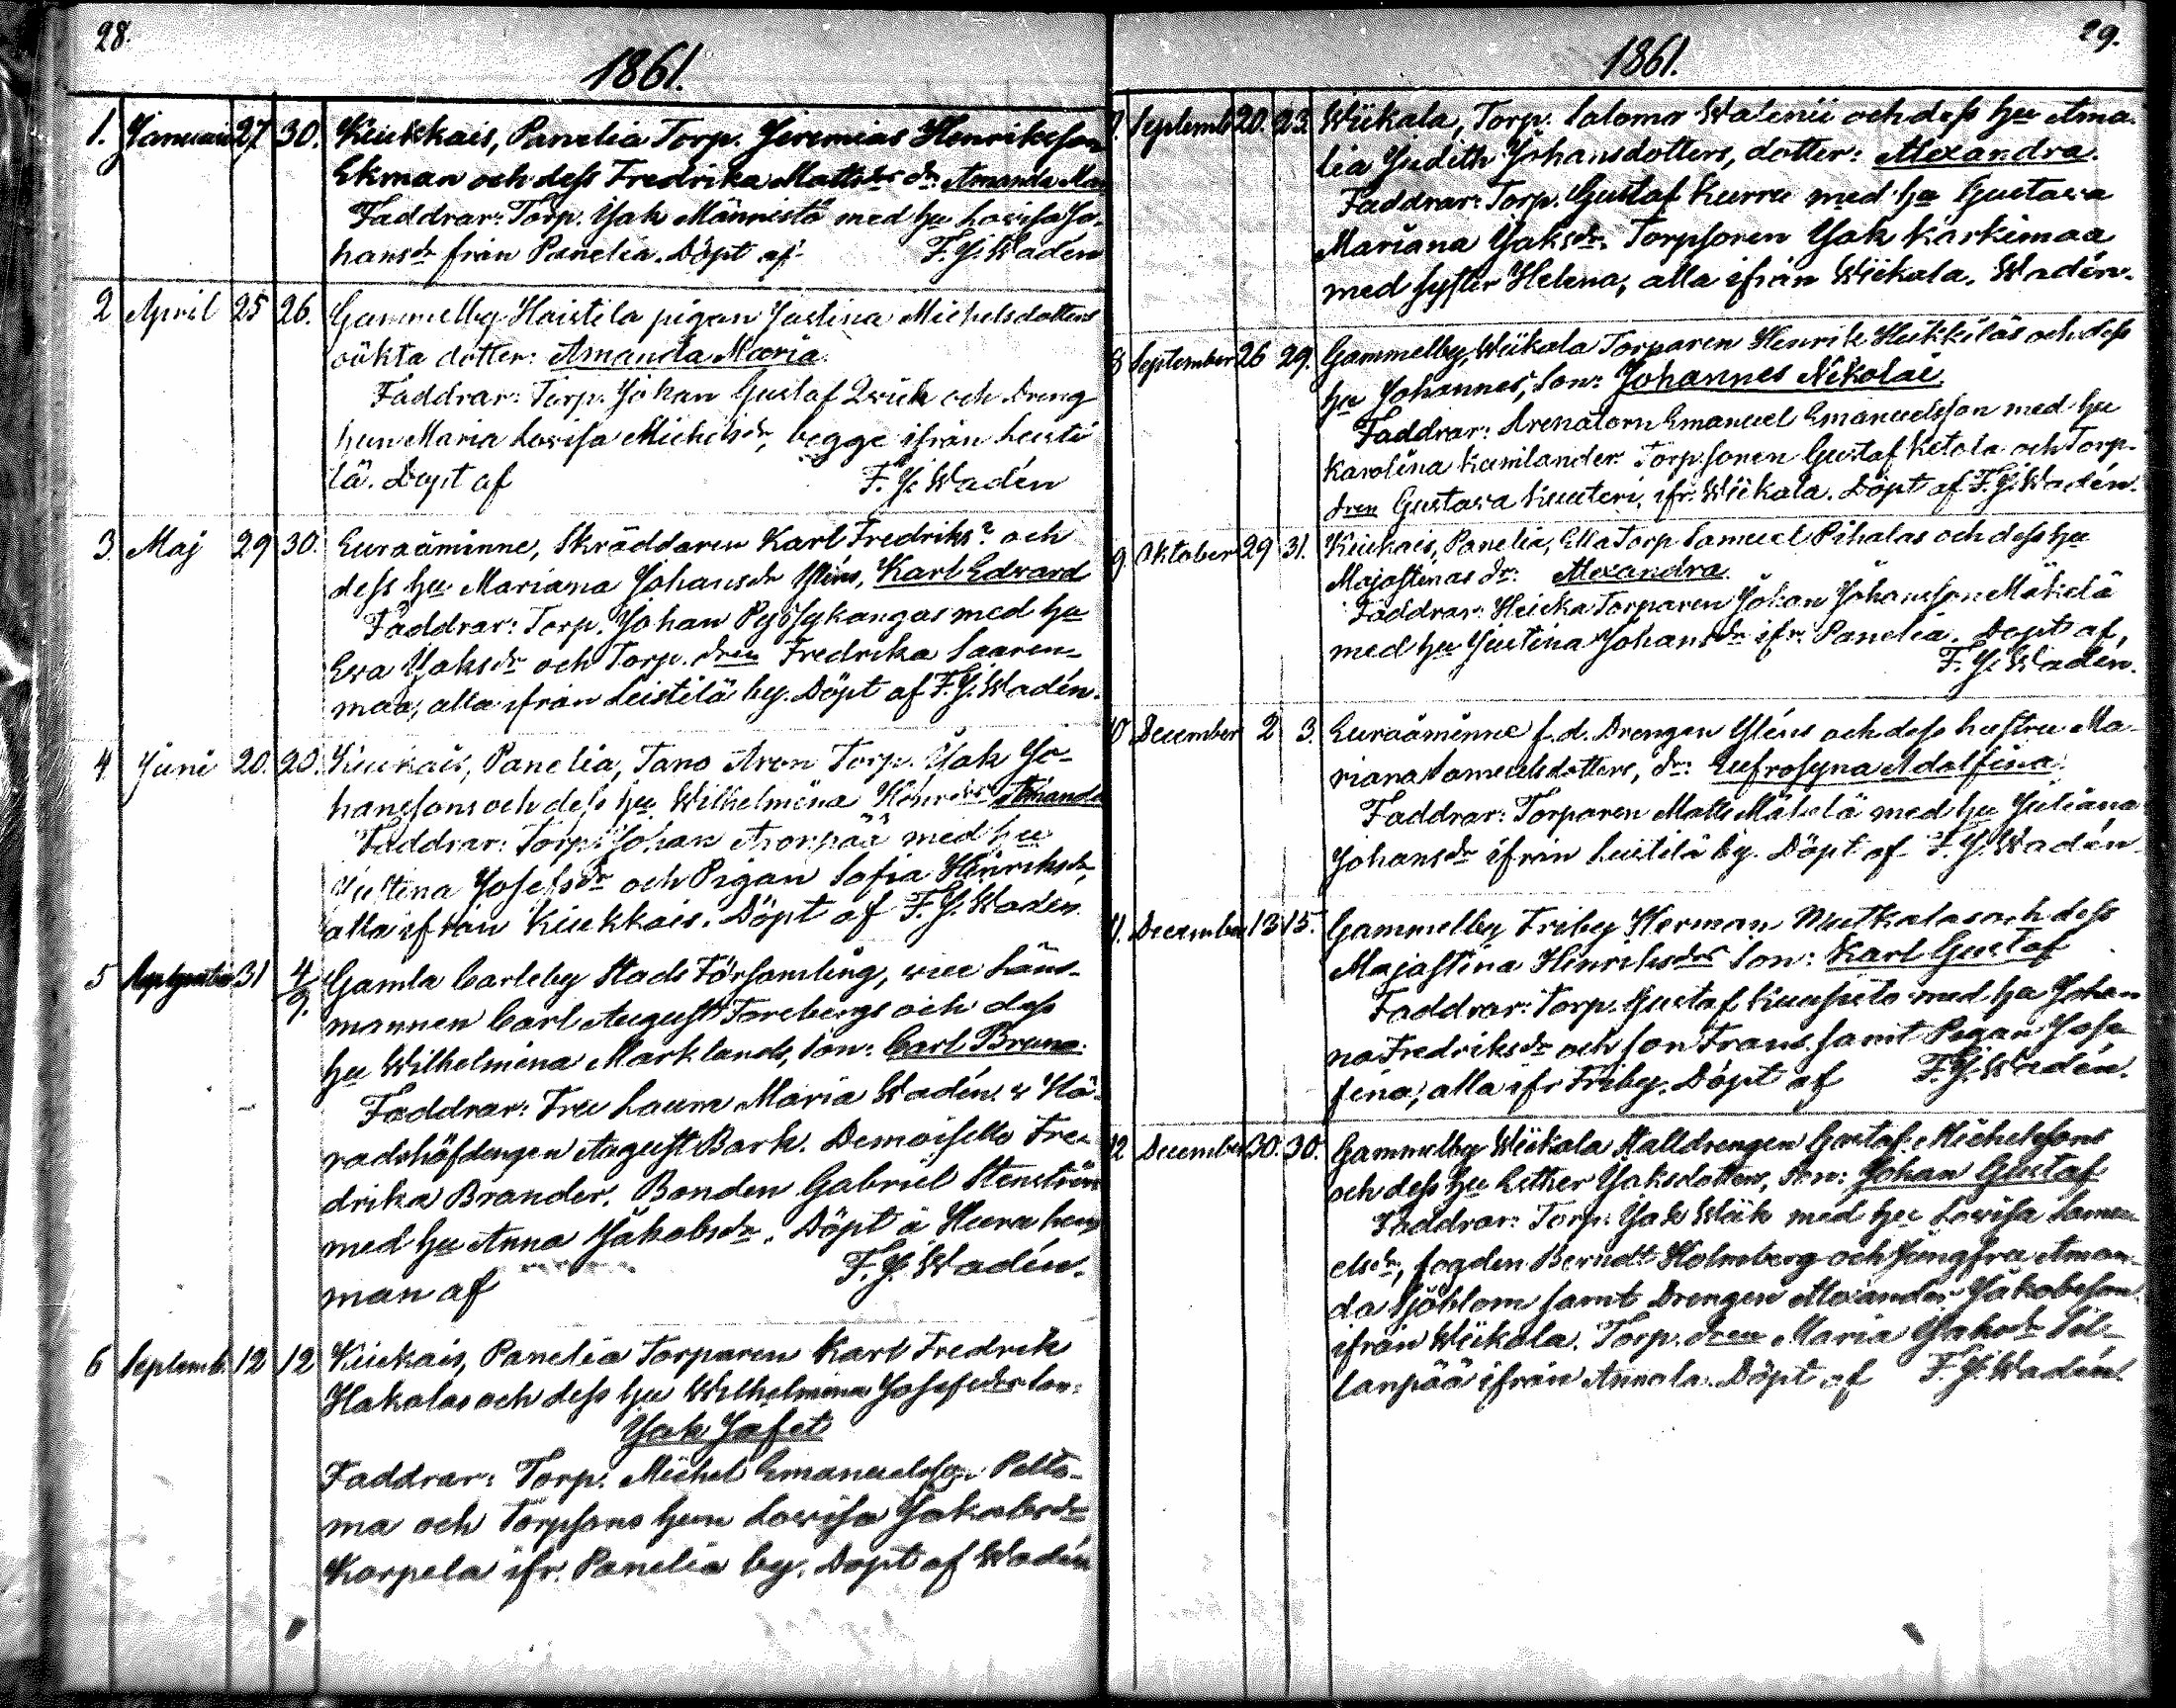 28.
1861.
1. Januari 27 30. Kiukkais, Panelia Torp. Jeremias Henriksson
Ekman och dess Fredrika Mattsdrs dr. Amanda Mar
Faddrar: Torp. Jak Männistö med hu Lovisa Jo-
hansdr från Panelia. Döpt af F. J. Wadén
2 April 25 26. Gammelby Haistila pigan Justina Michelsdotters
oäkta dotter: Amanda Maria.
Faddrar: Torp. Johan Gustaf Qvick och Dreng
hun Maria Lovisa Michelsdr, begge ifrån Leisti
lä. Döpt af F. J. Wadén
3. Maj 29 30. Euraåminne, Skräddaren Karl Fredriks? och
dess hu Mariana Johansdr Karl Edvard
Faddrar: Torp. Johan Pyösykangas med hu
Eva Jaksdr och Torp. dren Fredrika Saaren-
maa, alla ifrån Leistilä by. Döpt af F. J. Wadén.
4 Juni 20. 20. Kiukais, Panelia, Tano Aron Torp. Jak Jo-
hanssons och dess hu Wilhelmina Amanda
Faddrar: Torp. Johan Aronpää med hu
Justina Josefsdr och Pigan Sofia Hinriksdr,
alla ifrån Kiukkais. Döpt af F. J. Wadén
5 31 4/9. Gamla Carleby Stads Församling, vice Läns-
mannen Carl August Forsbergs och dess
hu Wilhelmina Marklands, son: Carl Bruno.
Faddrar: Fru Laura Maria Wadén & Hä-
radshöfdengen August Bark. Demoiselle Fre-
drika Brander. Bonden Gabriel Stenström
med hu Anna Jakobsdr. Döpt å
man af F. J. Wadén.
6 Septemb. 12 12 Kiukais, Panelia Torparen Karl Fredrik
Hakalas och dess hu Wilhelmina Josefsdrs son:
Jak Jafet
Faddrar: Torp. Michel Emanuelsson Pelto-
ma och Torpsons hun Lovisa Jakobsdr
Korpela ifr. Panelia by. Döpt af Wadén
29.
1861.
7. Septemb 20. 23. Wiikala, Torp. Salomo Walenii och dess hu Ama-
lia Judith Johansdotters, dotter: Alexandra.
Faddrar: Torp. Gustaf Kurru med hu Gustava
Mariana Jaksdr. Torpsonen Jak Karkimaa
med syster Helena, alla ifrån Wiikala. Wadén.
8 September 26 29. Gammelby, Wiikala Torparen Henrik Heikkiläs och dess
hu Johannes, son: Johannes Nikolai.
Faddrar: Arenatorn Emanuel Emanuelsson med hu
Karolina Kumlander. Torpsonen Gustaf Ketola och Torp-
dren Gustava Kuuteri, ifr. Wiikala. Döpt af F. J. Wadén.
9 Oktober 29 31. Kiukais, Panelia, Torp Samuel Pihalas och dess hu
Majastinas dr: Alexandra.
Faddrar: Torparen Johan Johansson Mäkelä
med hu Justina Johansdr ifr. Panelia. Döpt af,
F. J. Wadén.
10 December 2 3. Euraåminne f.d. Drengen Yléns och dess hustru Ma-
riana Samuelsdotters, dr: Eufrosyna Adolfina.
Faddrar: Torparen Matts Mäkelä med hu Juliana
Johansdr ifrån Leistilä by. Döpt af F. J. Wadén
11. December 13 15. Gammelby Friby Herman Nuutkalas och dess
Majastina Hinriksdrs Son: Karl Gustaf
Faddrar: Torp. Gustaf Kuusisto med hu Johan
na Fredriksdr och son Frans samt Pigan Jose-
fina, alla ifr Friby. Döpt af F. J. Wadén.
12 December 30. 30. Gammelby Wiikala Stalldrengen Gustaf Michelssons
och dess hu Esther Jaksdotters, son: Johan Gustaf
Faddrar: Torp. Jak Wiik med hu Lovisa Samu-
elsdr, fogden Berndt Holmberg och Jungfru Aman-
da Sjöblom samt Drengen Alexander Jakobsson
ifrån Wiikala. Torp. dren Maria Jaksdr Sil-
lanpää ifrån Annola. Döpt af F. J. Wadén.